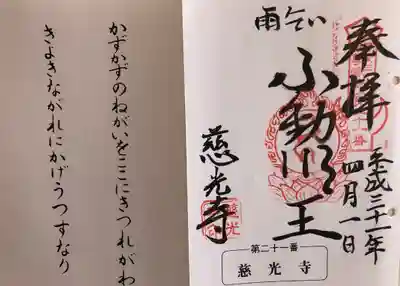 奉拝
平成三十一年
四月一日
雨乞い
不動明王
慈光寺
第二十一番
慈光寺
かずかずのねがいをここにきつれがわ
きよきながれにかげうつすなり